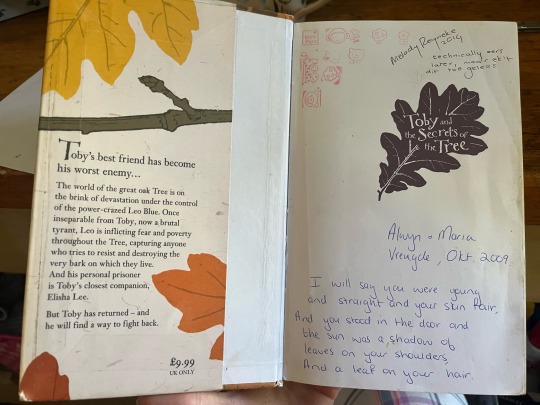 Toby's best friend has become
his worst enemy...
The world of the great oak Tree is on
the brink of devastation under the control
of the power-crazed Leo Blue. Once
inseparable from Toby, now a brutal
tyrant, Leo is inflicting fear and poverty
throughout the Tree, capturing anyone
who tries to resist and destroying the
very bark on which they live.
And his personal prisoner
is Toby's closest companion,
Elisha Lee.
But Toby has returned – and
he will find a way to fight back.
£9.99
UK ONLY
Melody Reyneke
2014
technically
later, maar ek't
dit toe gelees
Toby and
the Secrets of
the Tree
Alwyn & Maria
Vreugde, Okt. 2009
I will say you were young
and straight and your skin fair,
And you stood in the door and
the sun was a shadow of
leaves on your shoulders
And a leaf on your hair.